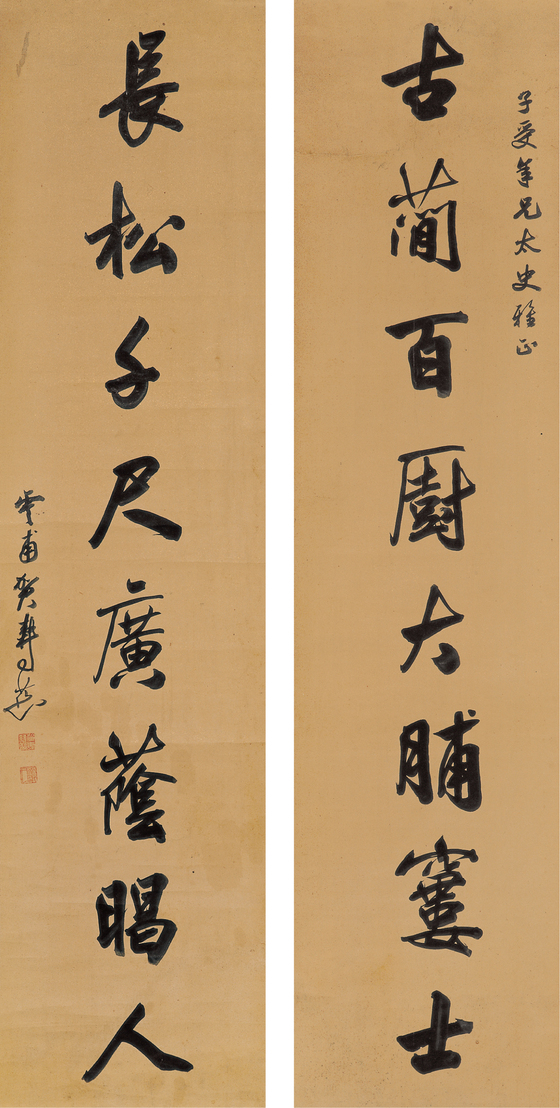 子受年兄太史雅正
古簡百廚大脯窶士
長松千尺廣蔭暍人
雲甫賀壽慈